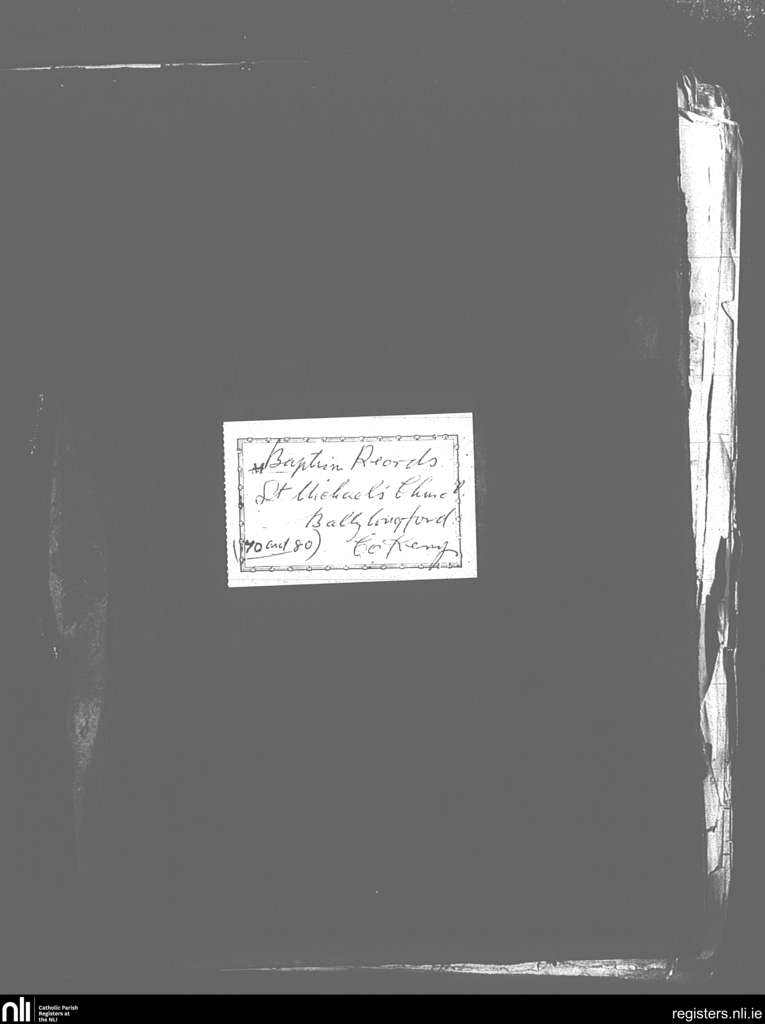 Baptism Reords
St Michael's Church
Ballylongford
(70 and 80) Co. Kerry
nli
Catholic Parish
Registers at
the NLI
registers.nli.ie
registers.nli.ie